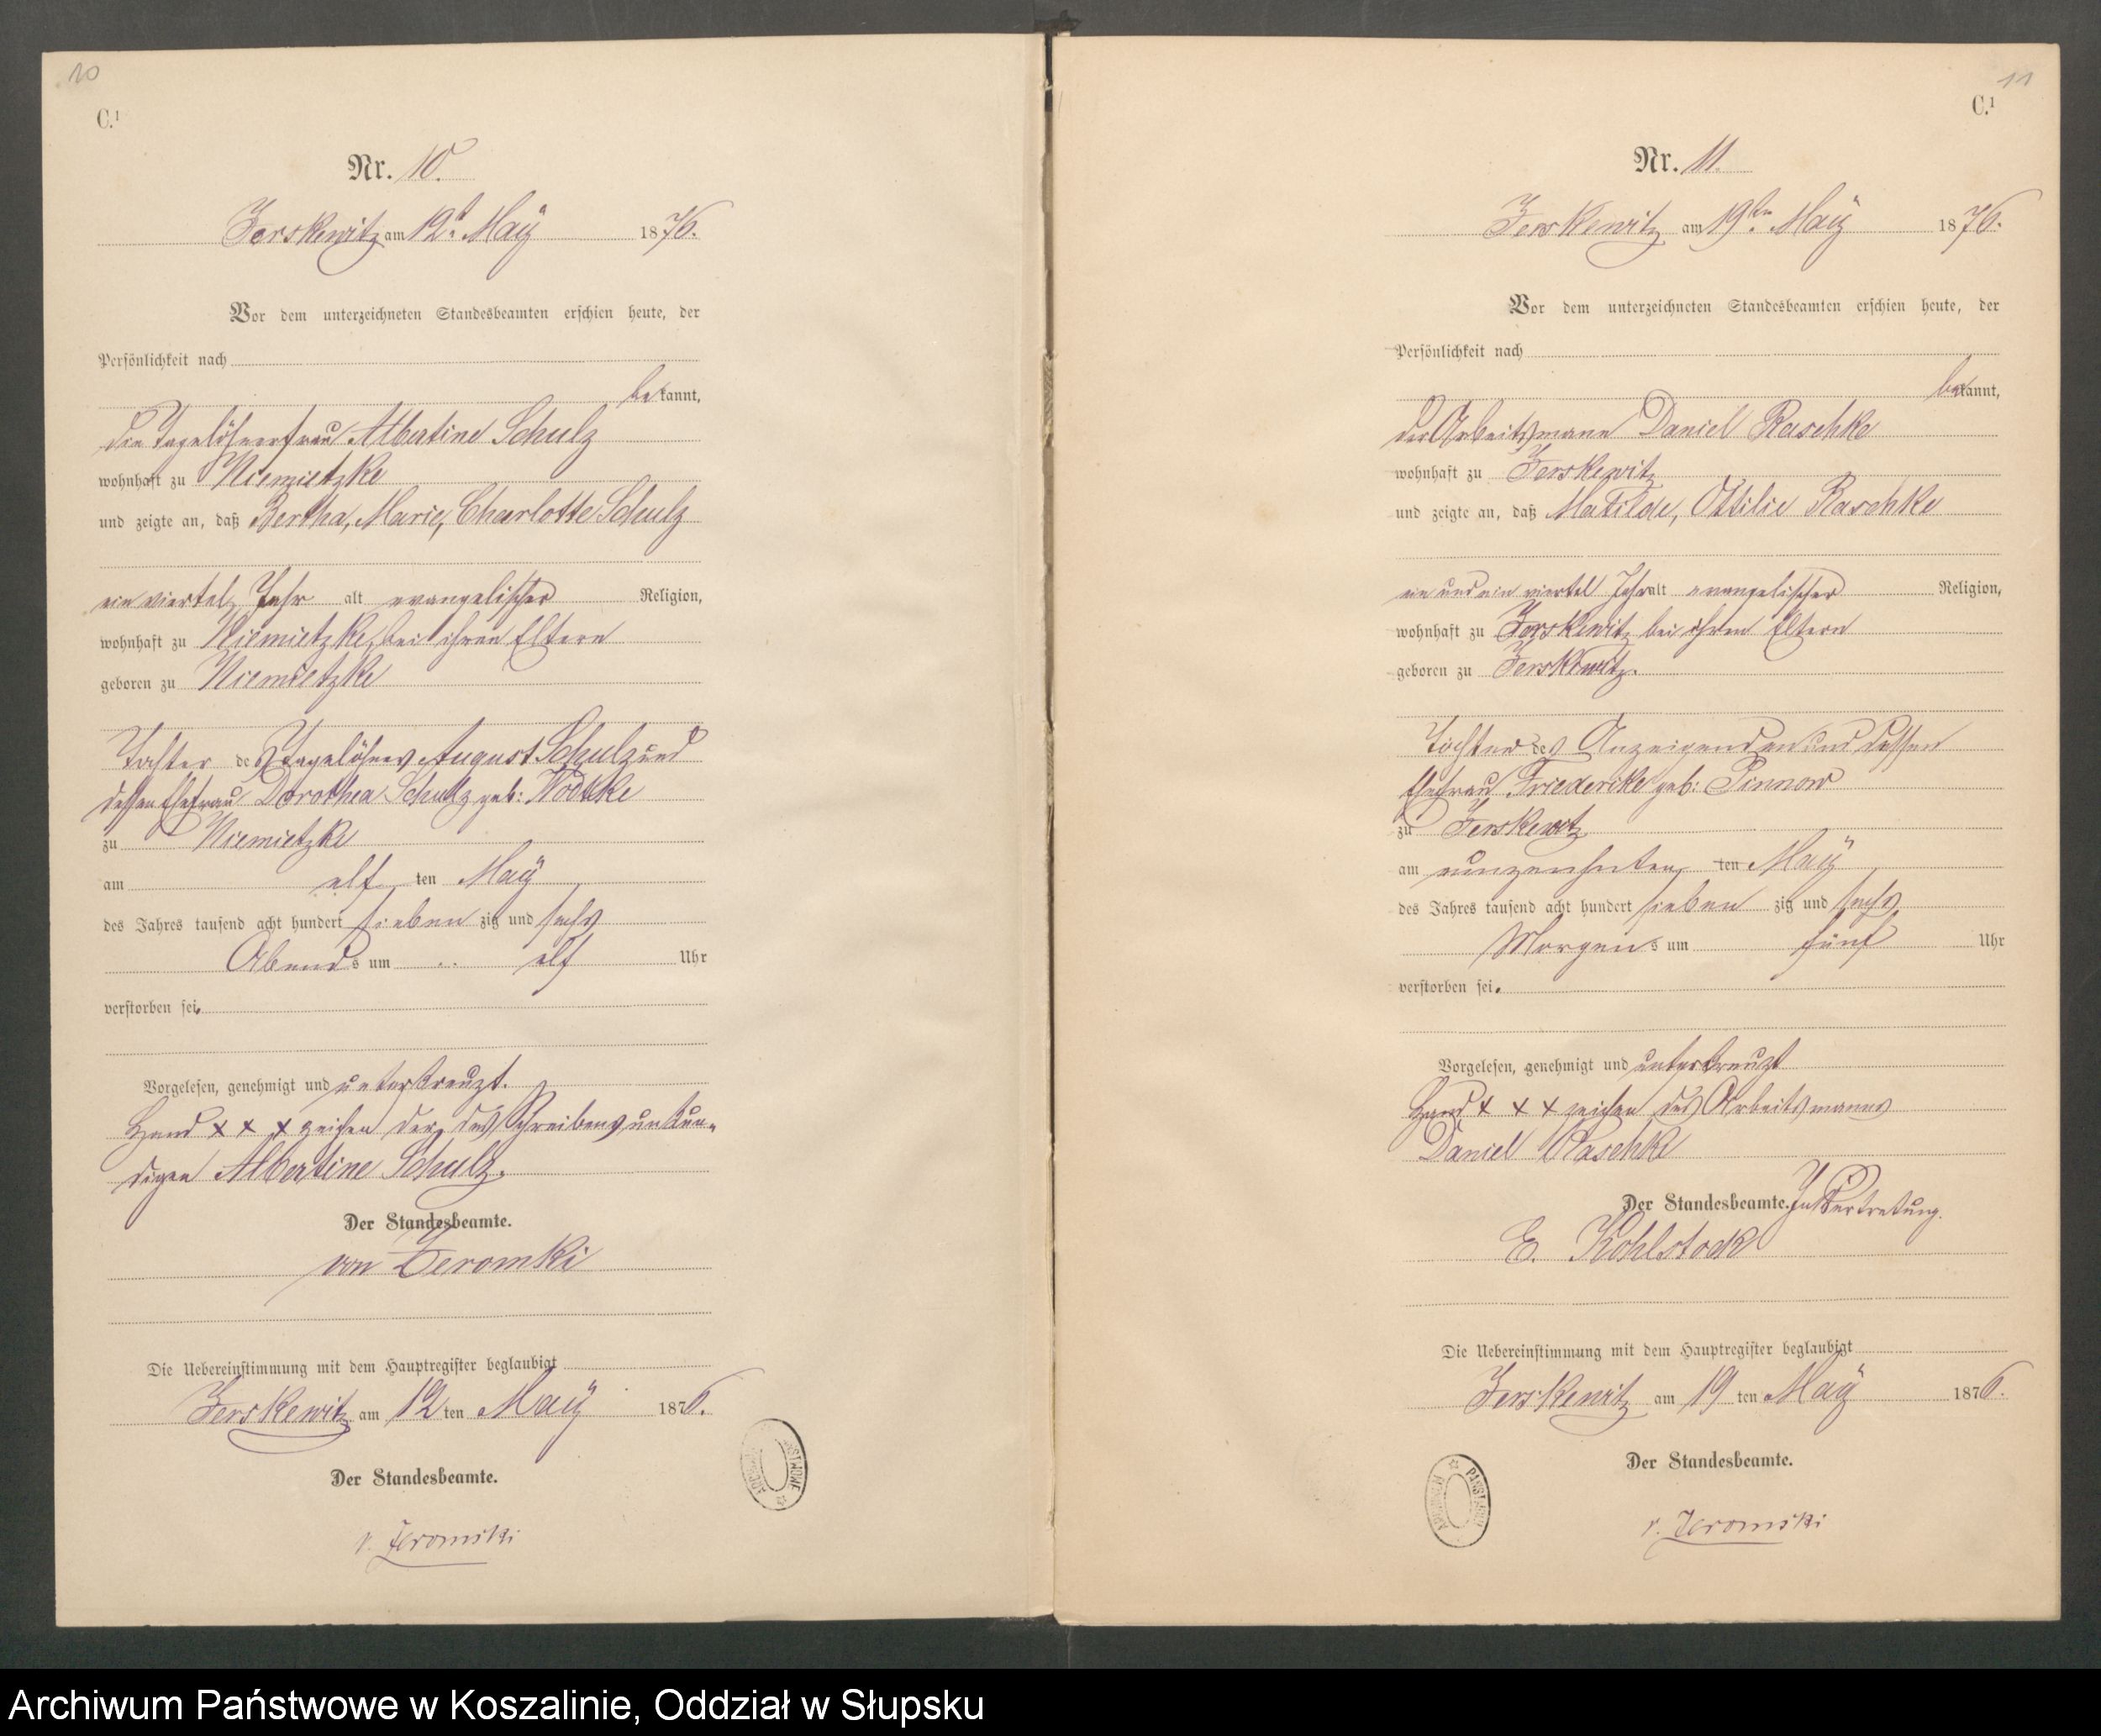 10
C.¹
Nr. 10.
Jerskewitz am 12t. Maÿ 1876.
Vor dem unterzeichneten Standesbeamten erschien heute, der
Persönlichkeit nach
bekannt,
die Tagelöhnerfrau Albertine Schulz
wohnhaft zu Niemietzke
und zeigte an, daß Bertha, Marie, Charlotte Schulz
ein viertel Jahr alt evangelischer Religion,
wohnhaft zu Niemietzke, bei ihren Eltern
geboren zu Niemietzke
Tochter des Tagelöhners August Schulz und
dessen Ehefrau Dorothea Schulz geb: Wodtke
zu Niemietzke
am elf ten Maÿ
des Jahres tausend acht hundert sieben zig und sechs
Abends um elf Uhr
verstorben sei.
Vorgelesen, genehmigt und unterkreuzt.
Hand x x x zeichen der des Schreibens unkun-
digen Albertine Schulz.
Der Standesbeamte.
von Zeromski
Die Uebereinstimmung mit dem Hauptregister beglaubigt
Jerskewitz am 12 ten Maÿ 1876.
Der Standesbeamte.
v. Zeromski
11
C.¹
Nr. 11.
Jerskewitz am 19ten Maÿ 1876.
Vor dem unterzeichneten Standesbeamten erschien heute, der
Persönlichkeit nach
bekannt,
der Arbeitsmann Daniel Raschke
wohnhaft zu Jerskewitz
und zeigte an, daß Matilde, Ottilie Raschke
ein und ein viertel Jahr alt evangelischer Religion,
wohnhaft zu Jerskewitz bei ihren Eltern
geboren zu Jerskewitz.
Tochter des Anzeigenden und dessen
Ehefrau Friederike geb: Pinnow
zu Jerskewitz
am neunzenhnten ten Maÿ
des Jahres tausend acht hundert sieben zig und sechs
Morgens um fünf Uhr
verstorben sei.
Vorgelesen, genehmigt und unterkreuzt
Hand x x x zeichen des Arbeitsmanns
Daniel Raschke
Der Standesbeamte. In Vertretung.
E. Kohlstock
Die Uebereinstimmung mit dem Hauptregister beglaubigt
Jerskewitz am 19 ten Maÿ 1876.
Der Standesbeamte.
v. Zeromski
Archiwum Państwowe w Koszalinie, Oddział w Słupsku